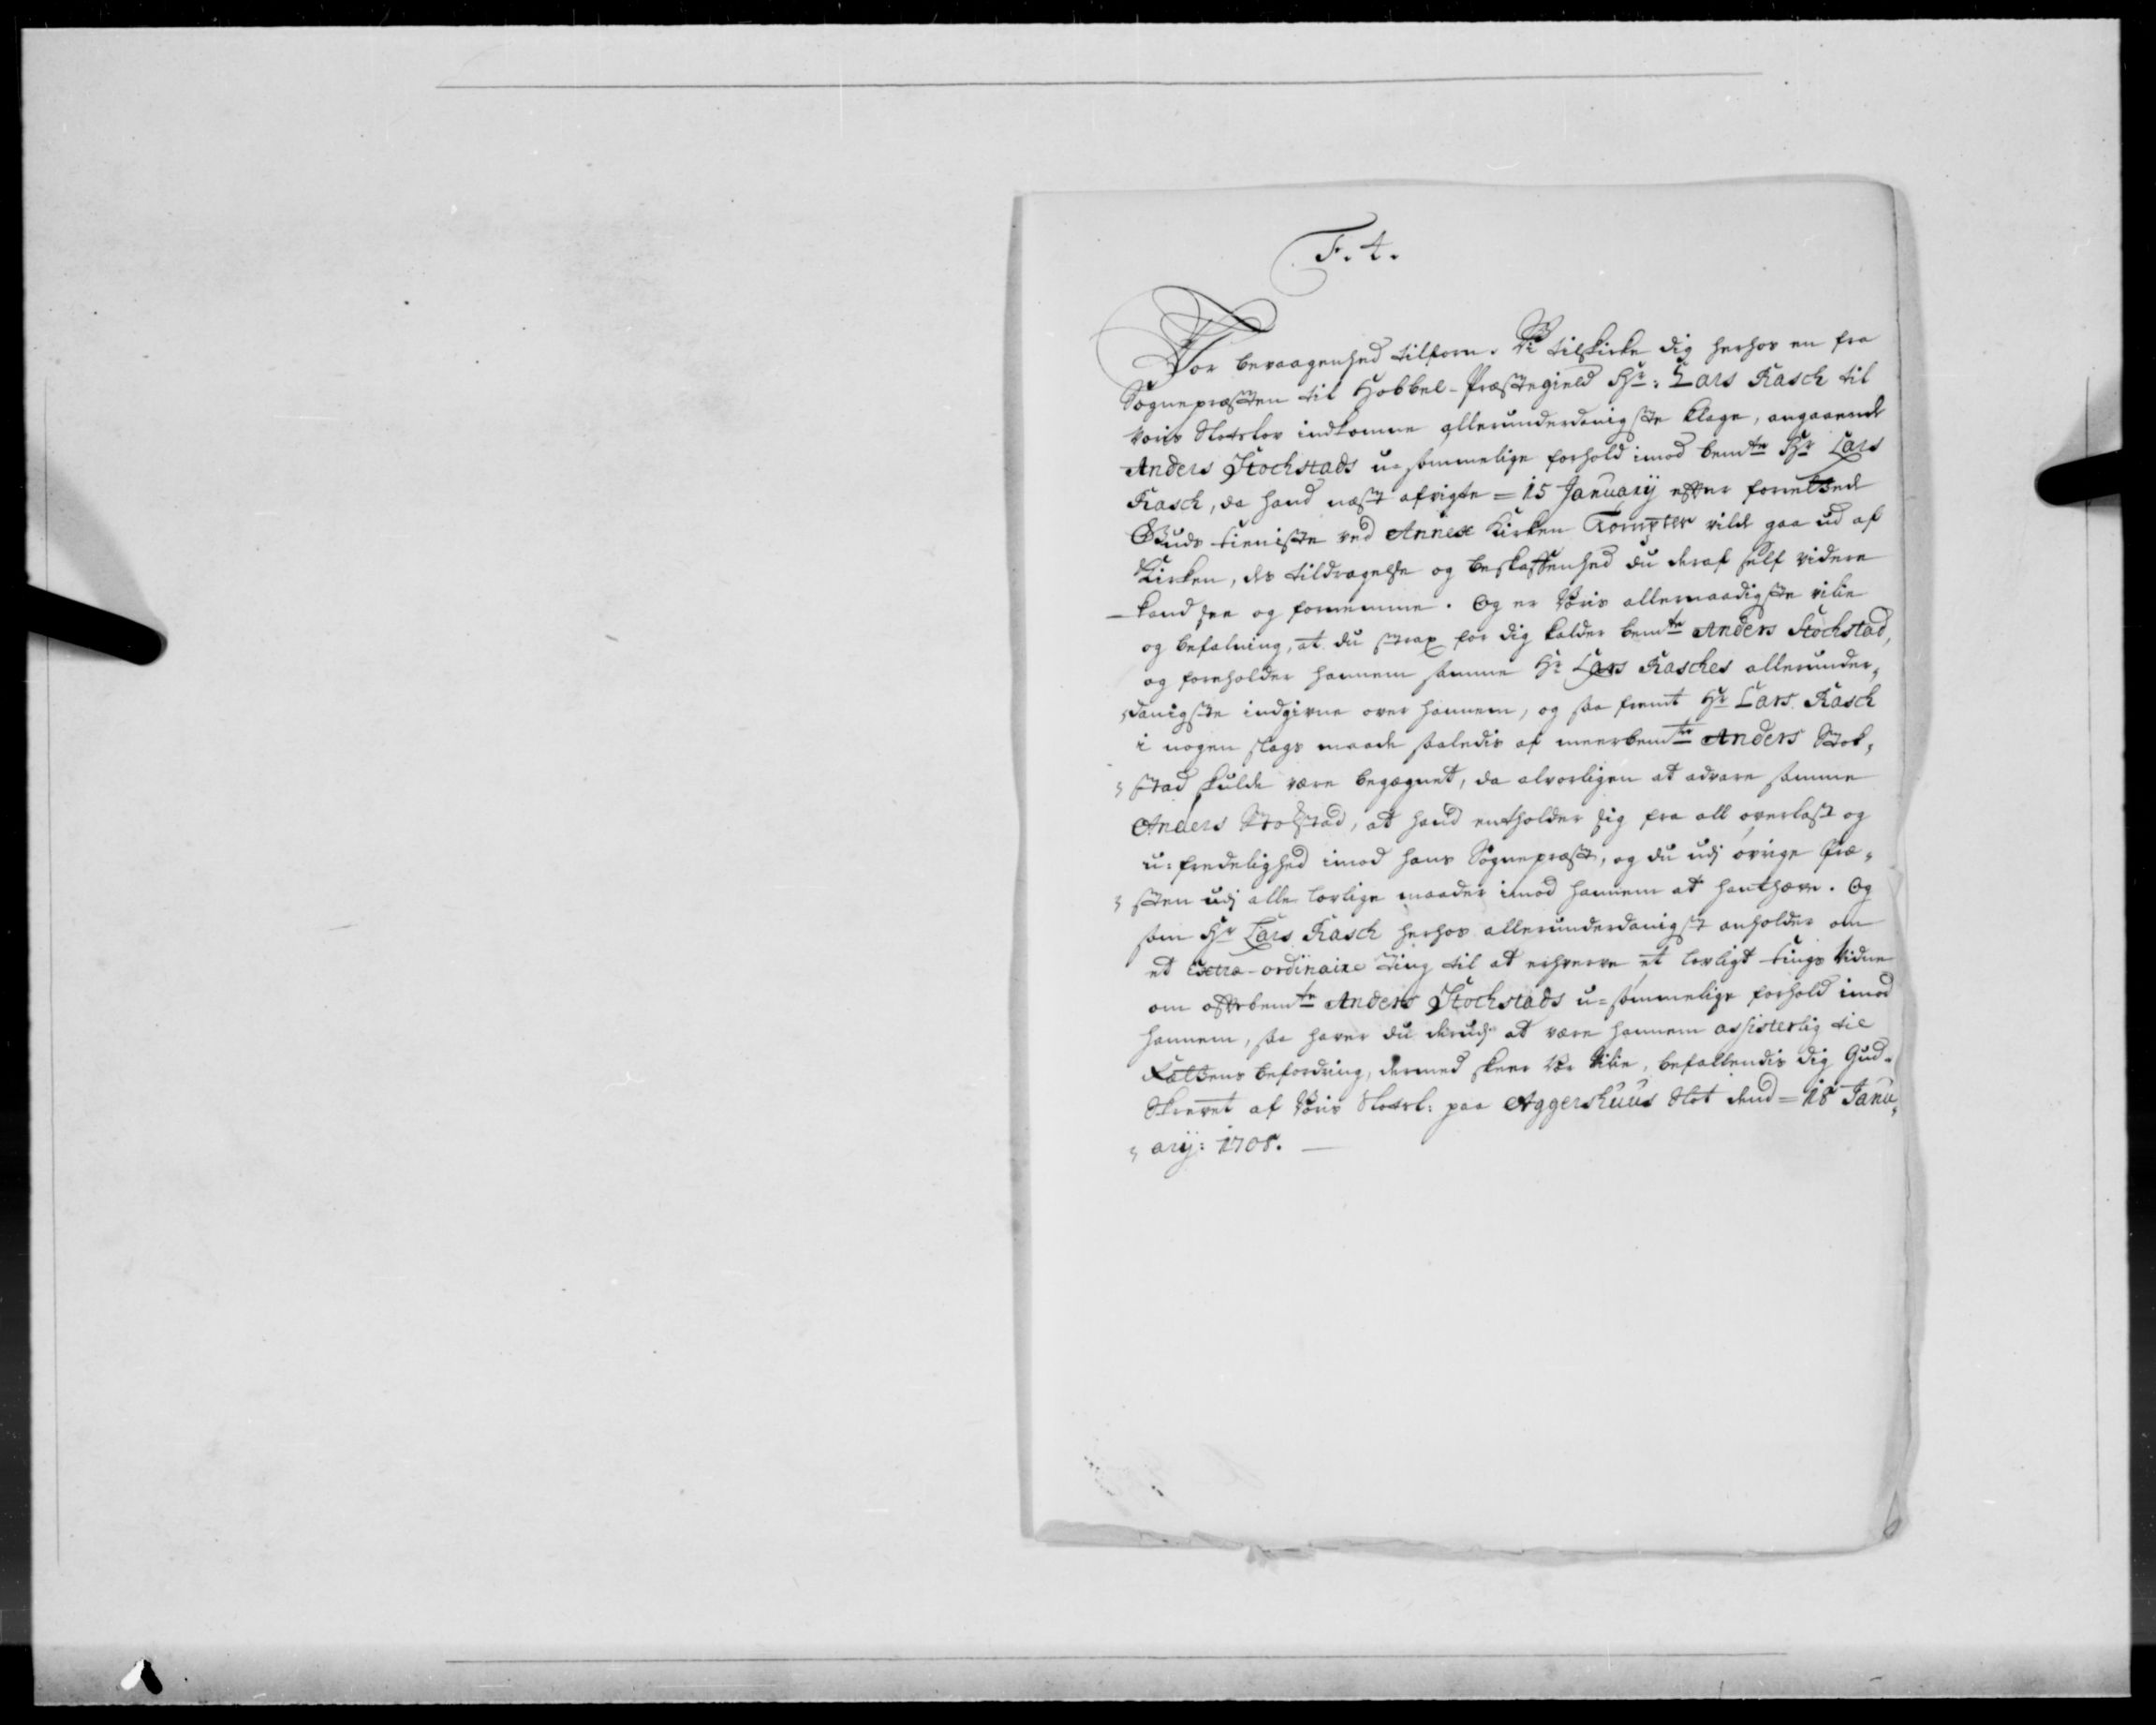 F. 4.
Vor bevaagenhed tilforn. Vi tilskicke dig herhos en fra
Sognepræsten til Hobbel-Præstegield Hr: Lars Rasch til
voris Slotslov indkomne allerunderdanigste klage, angaaende
Anders Stochstads u-sømmelige forhold imod bemte Hr Lars
Rasch, da hand næst afvigte = 15 January efter forrettede
Guds tieniste ved Annex Kirken Tompter vilde gaa ud af
Kirken, des tildragelse og beskaffenhed du deraf self videre
kand see og fornemme. Og er Voris allernaadigste villie
og befalning, at du strax for dig kalder bemte Anders Stochstad,
og foreholder hannem samme Hr Lars Rasches allerunder,,
,,danigste indgivne over hannem, og saa fremt Hr Lars Rasch
i nogen slags maade saaledis af meerbemte Anders Stok,,
,,stad skulde være begegnet, da alvorligen at advare samme
Anders Stokstad, at hand entholder sig fra all overlast og
u-fredelighed imod hans Sognepræst, og du udj øvrige Præ,,
,,sten udj alle lovlige maader imod hannem at hanthæve. Og
som Hr Lars Rasch herhos allerunderdanigst anholder om
et extra-ordinaire Ting til at erhverve et lovligt tings vidne
om oftebemte Anders Stochstads u-sømmelige forhold imod
hannem, saa haver du derudj at være hannem assisterlig til
Rættens befordring, dermed skeer Vor Villie, befallendis dig Gud.
Skrevet af Voris Slotsl: paa Aggershuus Slot dend = 18 Janu,,
,,ary: 1708.